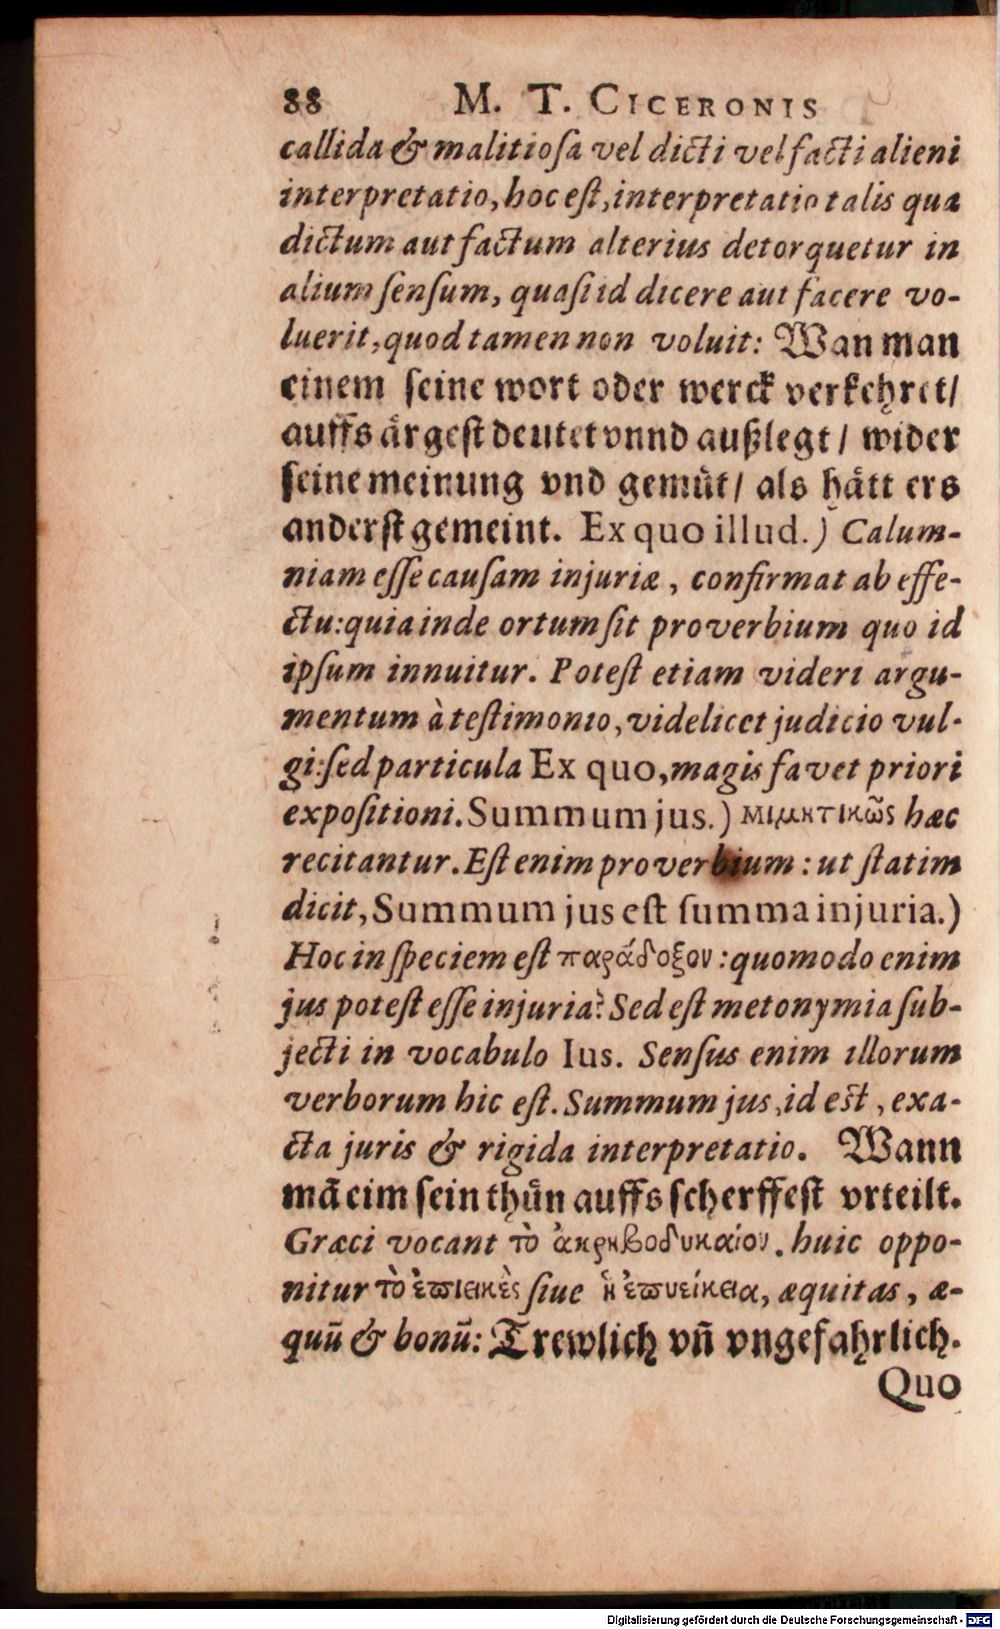 88 M. T. CICERONIS
callida & malitioſa vel dicti vel facti alieni
interpretatio, hoc eſt, interpretatio talis qua
dictum aut factum alterius detorquetur in
alium ſenſum, quaſi id dicere aut facere vo-
luerit, quod tamen non voluit: Wan man
einem ſeine wort oder werck verkehret/
auffs aͤrgeſt deutet vnnd außlegt / wider
ſeine meinung vnd gemuͤt/ als haͤtt ers
anderſt gemeint. Ex quo illud.) Calum-
niam eſſe cauſam injuriæ, confirmat ab effe-
ctu: quia inde ortum ſit proverbium quo id
ipſum innuitur. Poteſt etiam videri argu-
mentum à teſtimonio, videlicet judicio vul-
gi: ſed particula Ex quo, magis favet priori
expoſitioni. Summum jus.) μιμητικῶς hæc
recitantur. Eſt enim proverbium: ut ſtatim
dicit, Summum jus eſt ſumma injuria.)
Hoc in ſpeciem eſt παράδοξον: quomodo enim
jus poteſt eſſe injuria? Sed eſt metonymia ſub-
jecti in vocabulo Ius. Senſus enim illorum
verborum hic eſt. Summum jus, id eſt, exa-
cta juris & rigida interpretatio. Wann
mā eim ſein thuͤn auffs ſcherffeſt vrteilt.
Græci vocant τὸ ἀκρηβοδυκαίον. huic oppo-
nitur τὸ ἐπιεικὲς ſiue ἡ ἐπυείκεια, æquitas, æ-
quū & bonū: Trewlich vn̄ vngefahrlich.
Quo
Digitalisierung gefördert durch die Deutsche Forschungsgemeinschaft - DFG